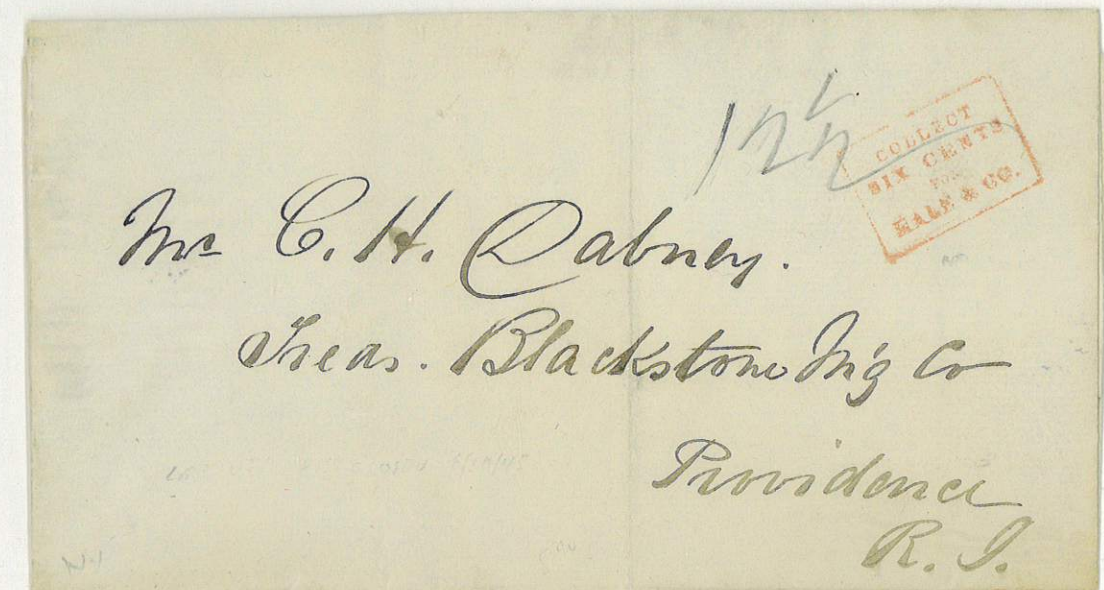 12 1/2
COLLECT
SIX CENTS
FOR
HALE & CO.
Mr C. H. Dabney.
Treas. Blackstone M'g Co
Providence
R. I.